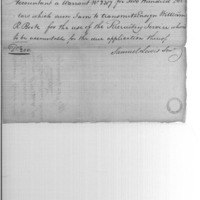 Accountant a Warrant No 8307 for two Hundred Dol
lars which sum I am to transmit to Major William
R. Boote for the use of the Recruiting Service who is
to be accountable for the due application thereof
Samuel Lewis Senr